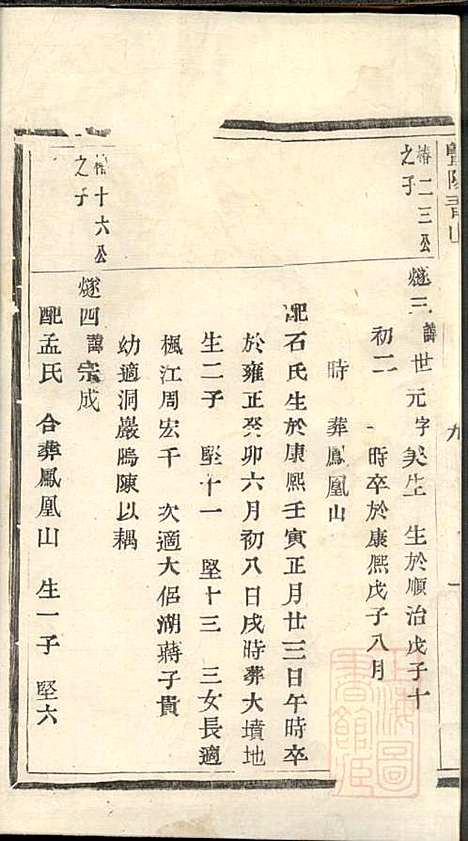 暨陽青山
椿二三公
之子
燧三 諱世元字美生 生於順治戊子十
初二 時卒於康熙戊子八月
時 葬鳳凰山
配石氏生於康熙壬寅正月廿三日午時卒
於雍正癸卯六月初八日戌時葬大墳地
生二子 堅十一 堅十三 三女長適
楓江周宏千 次適大侶湖蔣子貴
幼適洞巖鳴陳以耦
十六公
之子
燧四 諱宗成
配孟氏 合葬鳳凰山 生一子 堅六
九
上海圖
書館臧